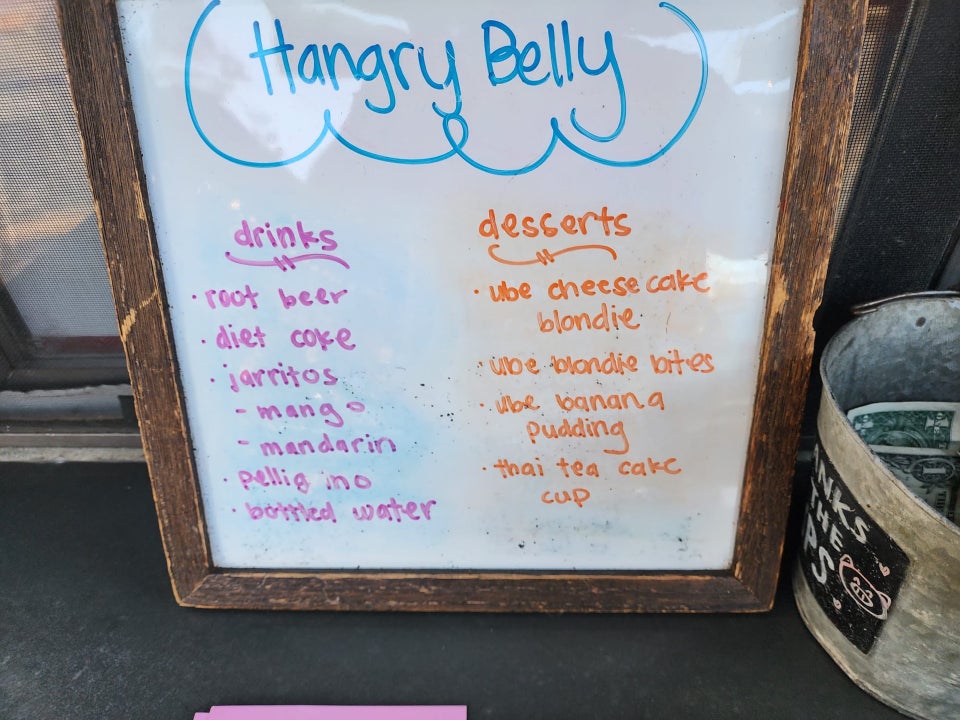 Hangry Belly
drinks
· root beer
· diet coke
· jarritos
- mango
- mandarin
· pelligrino
· bottled water
desserts
· ube cheesecake
blondie
· ube blondie bites
· ube banana
pudding
· thai tea cake
cup
THE
1